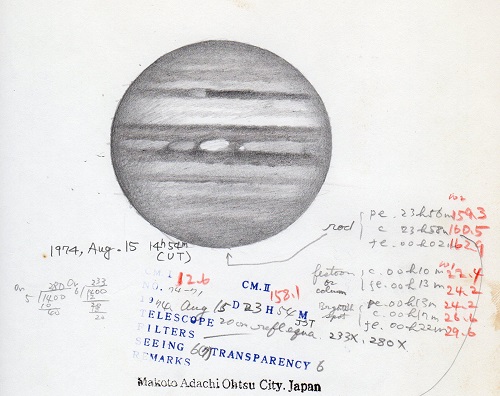 ω2
rod
p.e. 23h56m 159.3
c 23h58m 160.5
f.e. 00h02m 162.9
1974, Aug. 15 14h54m
(UT)
ω1
festoon
or
column
c. 00h10m 22.4
f.e. 00h13m 24.2
Bright
spot
p.e. 00h13m 24.2
c. 00h17m 26.6
f.e. 00h22m 29.6
CM.I 12.6 CM.II 158.1
NO. 74-71
1974 Aug 15 D 23 H 54 M
JST
TELESCOPE 20cm refl equa. 233X, 280X
FILTERS
SEEING 6 TRANSPARENCY 6
REMARKS
280
5 1400
10
233
6 1400
12
Makoto Adachi Ohtsu City. Japan